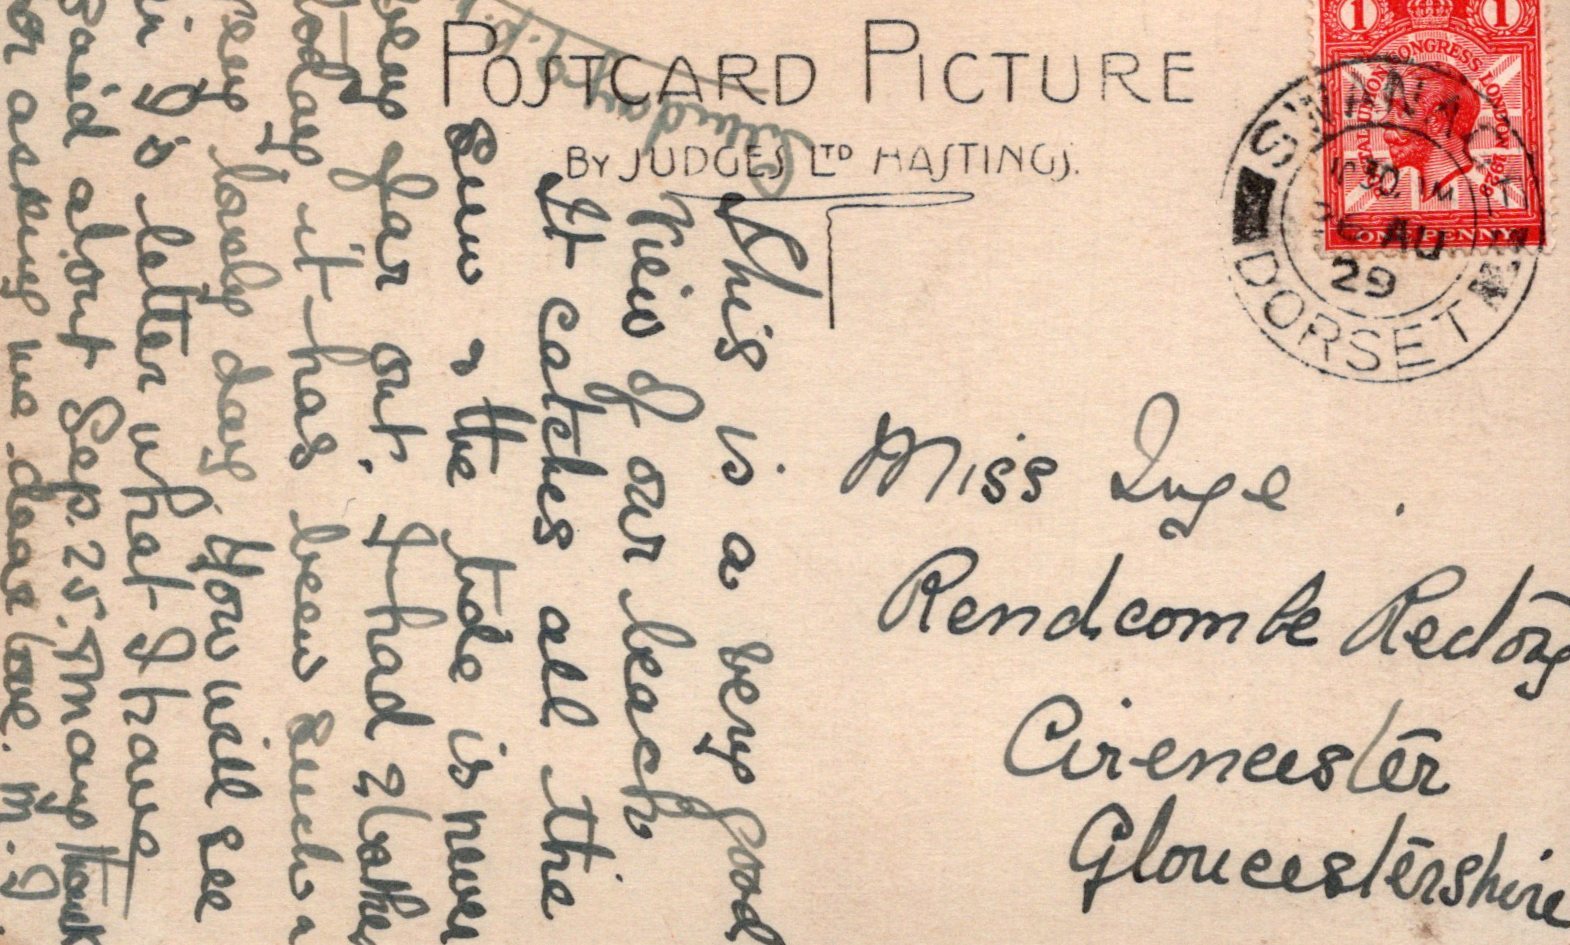 POSTCARD PICTURE
BY JUDGES LTD HASTINGS.
Saturday
This is a very good
view of our beach
It catches all the
sun & the tide is never
very far out. I had 2 bathes
today it has been such a
very lovely day You will see
in 's letter what I have
said about Sep. 25. Many thanks
for asking me. dear love. M. I.
Miss Inge
Rendcombe Rectory
Cirencester
Gloucestershire
1 1
POSTAL UNION CONGRESS LONDON 1929
ONE PENNY
SWANAGE
AU
29
DORSET